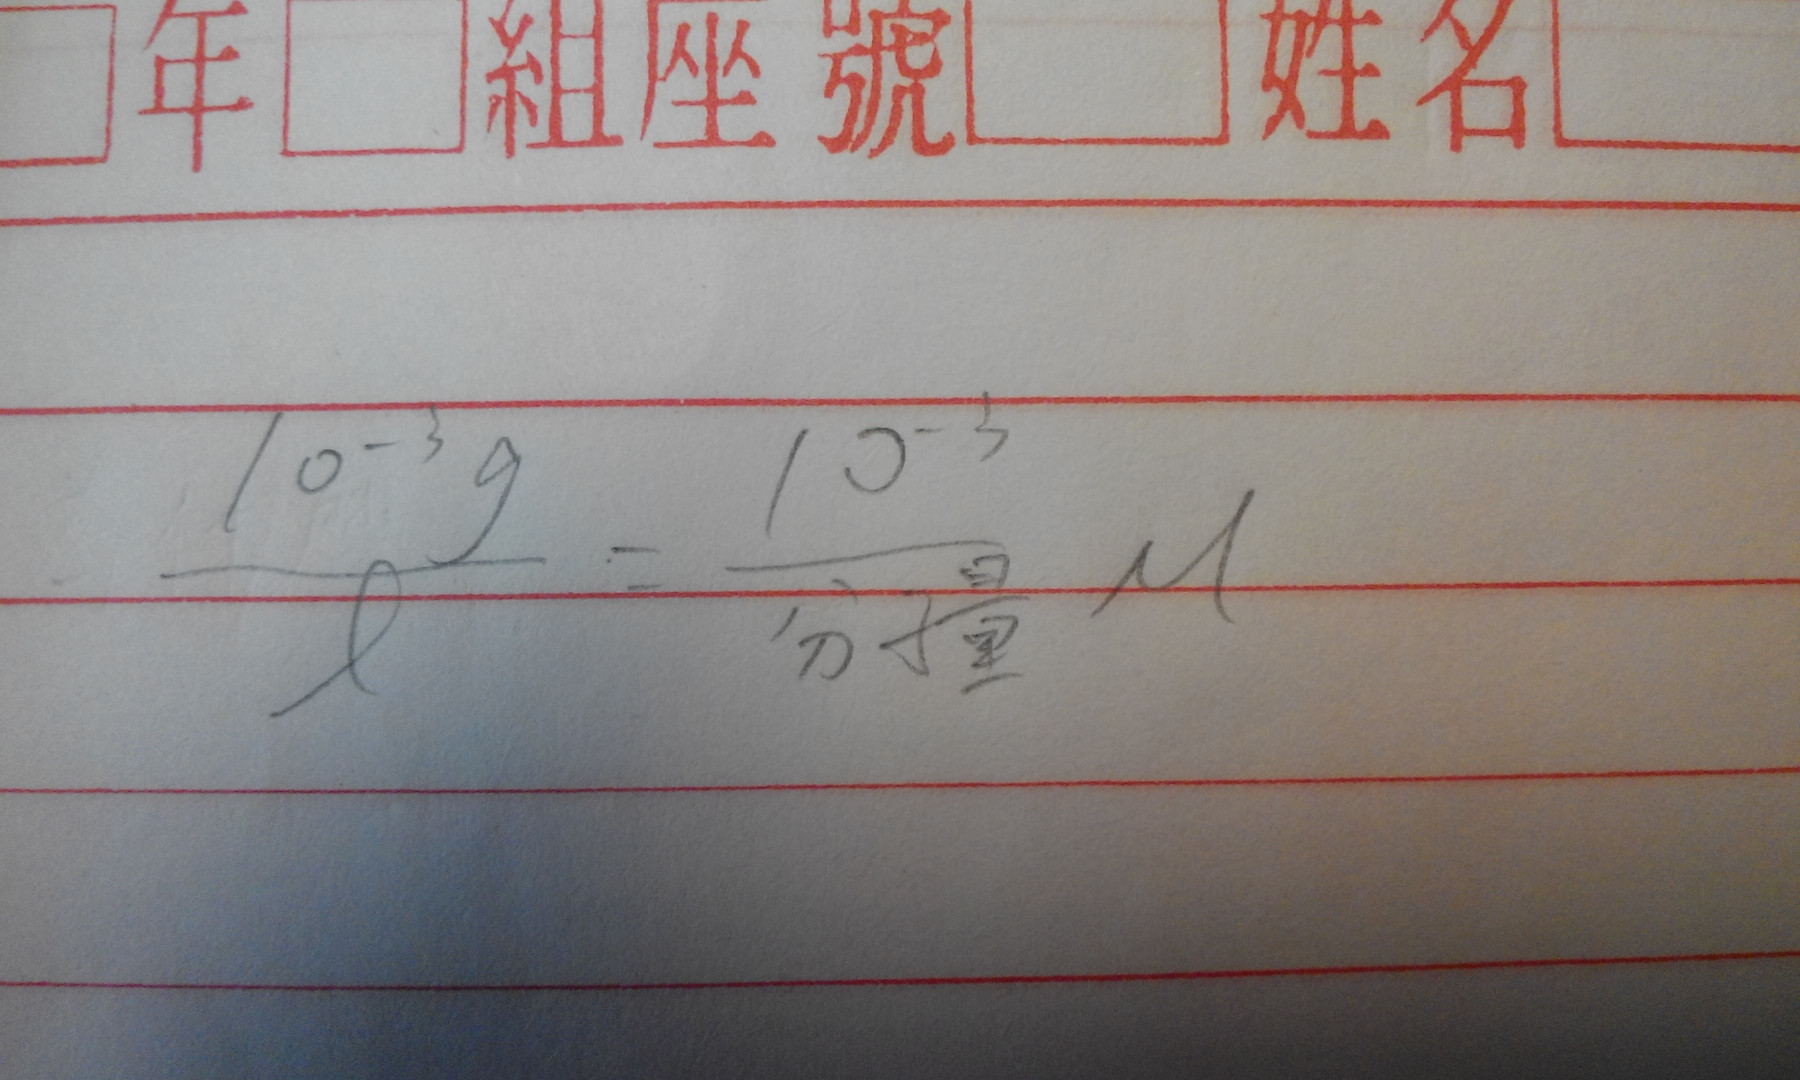 年 組座號 姓名
10⁻³g/l = 10⁻³/分子量 M